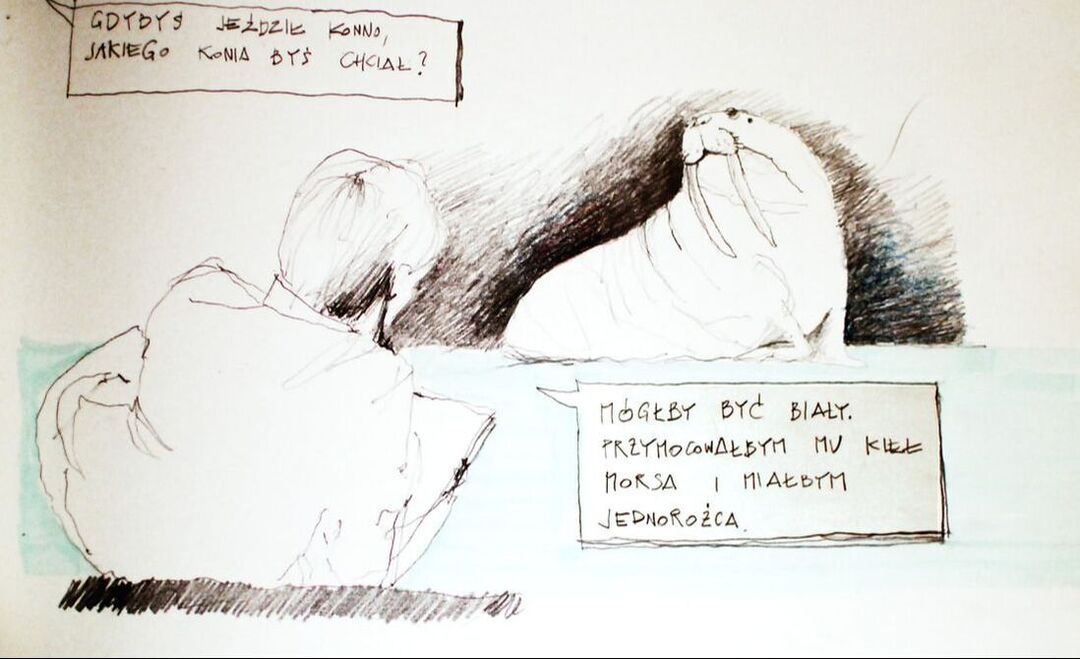 GDYBYŚ JEŹDZIŁ KONNO,
JAKIEGO KONIA BYŚ CHCIAŁ?
MÓGŁBY BYĆ BIAŁY.
PRZYMOCOWAŁBYM MU KIEŁ
MORSA I MIAŁBYM
JEDNOROŻCA.